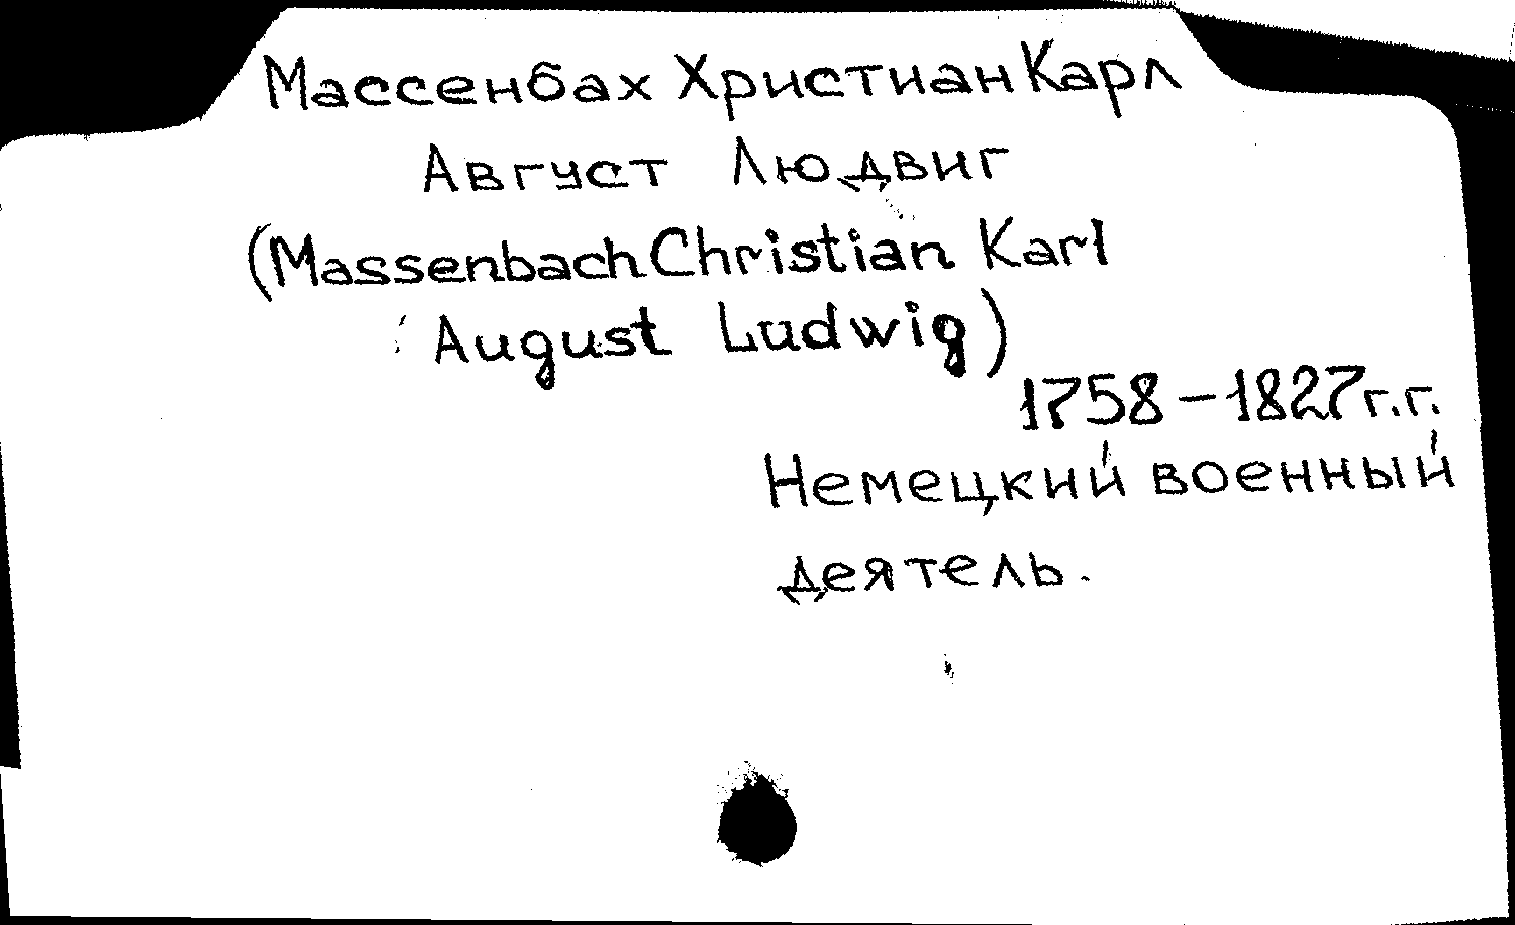 Массенбах Христиан Карл
Август Людвиг
(Massenbach Christian Karl
August Ludwig)
1758 – 1827 г.г.
Немецкий военный
деятель.